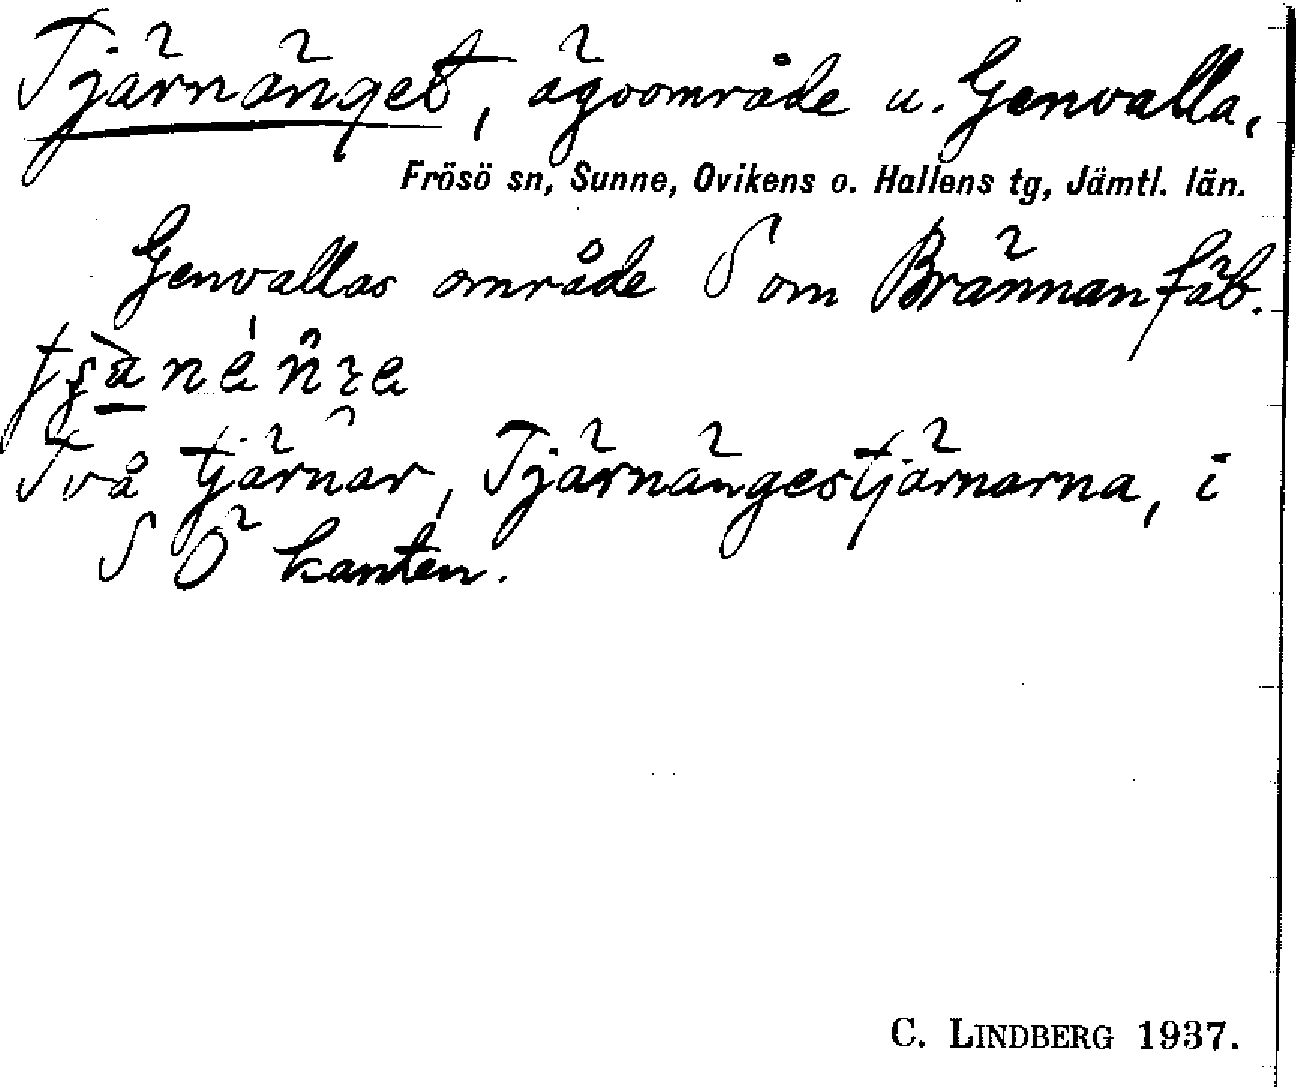 Tjärnänget, ägoområde u. Genvalla,
Frösö sn, Sunne, Ovikens o. Hallens tg, Jämtl. län.
Genvallas område S om Brännan fäb.
Två tjärnar, Tjärnängestjärnarna, i
S Ö kanten.
C. LINDBERG 1937.